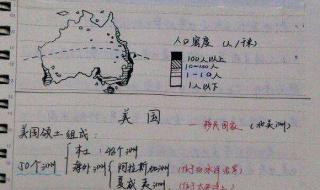 人口密度(人/千米)
100人以上
10-100人
1-10人
1人以下
美国 — 移民国家 (北美洲)
美国领土组成:
本土:48个洲
50个洲
海外洲
阿拉斯加洲
夏威夷洲